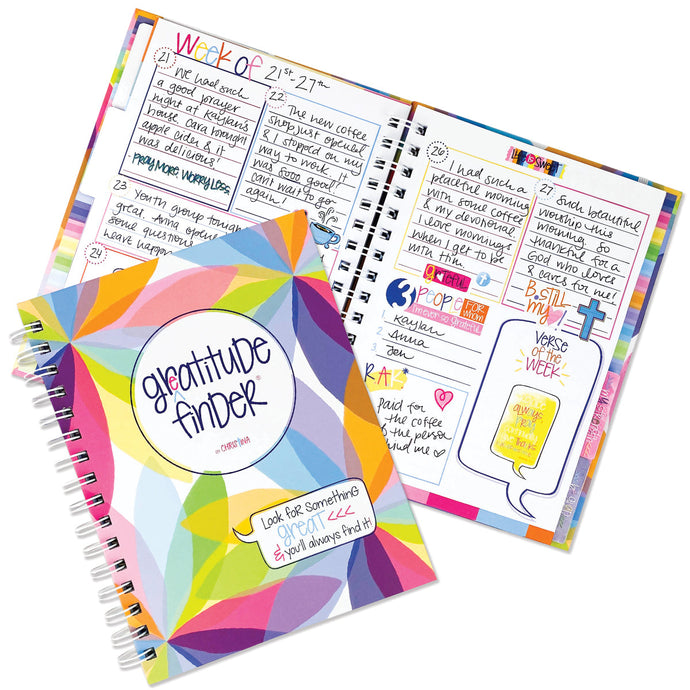 Week of 21st-27th
21
We had such
a good prayer
night at Kaylan's
house. Cara brought
apple cider & it
was delicious!
PRAY MORE. WORRY LESS.
22
The new coffee
shop just opened
& I stopped on my
way to work. It
was sooo good!
Can't wait to go
again!
23
Youth group tonight
great. Anna opened
some questions
leave happen
24
26
LIFE is SWEET
I had such a
peaceful morning
with some coffee
& my devotional.
I love mornings
when I get to be
with Him.
grateful
27
Such beautiful
worship this
morning. So
thankful for a
God who loves
& cares for me!
B STILL
my
3 PEOPLE FOR whom
I'm ever so grateful
1. Kaylan
2. Anna
3. Jen
RAK
paid for
the coffee
the person
hind me
VERSE
OF the
WEEK
always
greatitude
finder®
BY CHRISTINA
Look for something
great <<<
& you'll always find it!